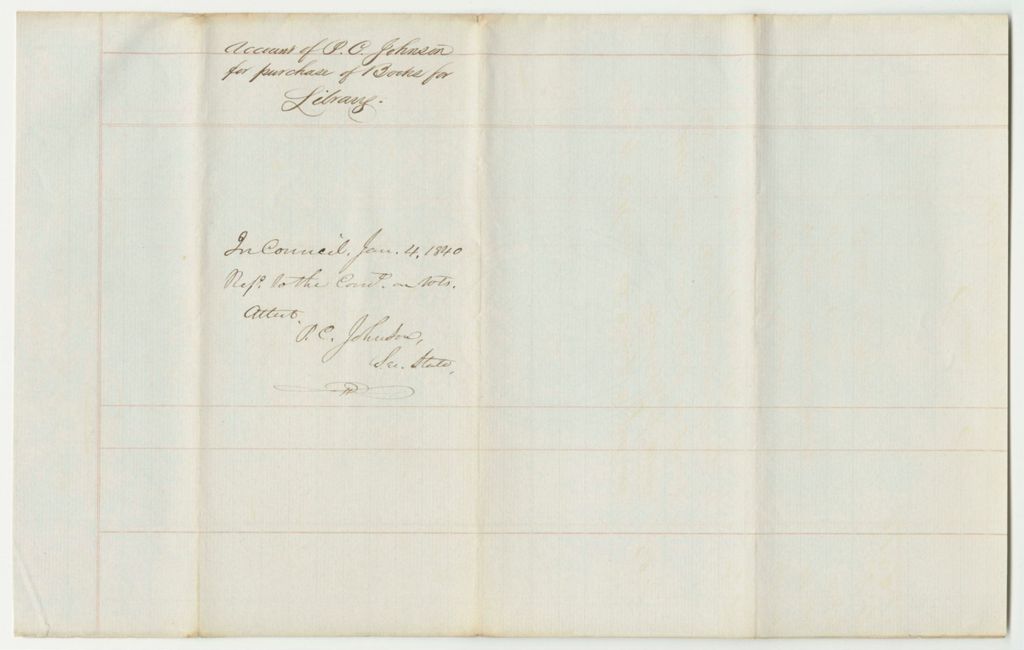 Account of P. C. Johnson
for purchase of Books for
Library.
In Council, Jan. 4, 1840
Refd. to the Come. on Accts.
Attest.
P. C. Johnson,
Sec. State,